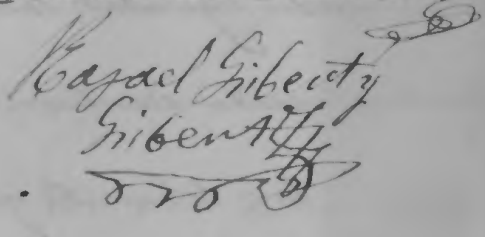 Rafael Giberty
Giberty